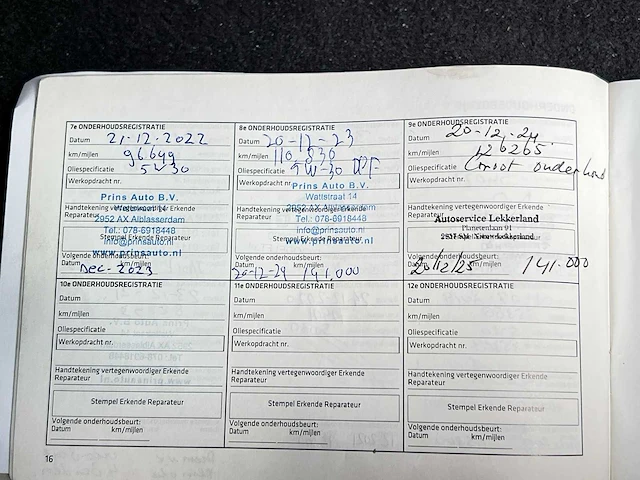 7e ONDERHOUDSREGISTRATIE
Datum 21-12-2022
km/mijlen 96699
Oliespecificatie 5-30
Werkopdracht nr.
Prins Auto B.V.
Watstraat 14
Handtekening vertegenwoordiger Erkende
Reparateur 2952 AX Alblasserdam
Tel.: 078-6918448
Stempel Erkende Reparateur
info@prinsauto.nl
www.prinsauto.nl
Volgende onderhoudsbeurt:
Datum km/mijlen
Dec-2023
8e ONDERHOUDSREGISTRATIE
Datum 20-12-23
km/mijlen 110.830
Oliespecificatie 5W-30 DPF
Werkopdracht nr.
Prins Auto B.V.
Wattstraat 14
2952 AX Alblasserdam
Handtekening vertegenwoordiger Erkende
Reparateur Tel.: 078-6918448
info@prinsauto.nl
Stempel Erkende Reparateur
www.prinsauto.nl
Volgende onderhoudsbeurt:
Datum km/mijlen
20-12-24 141.000
9e ONDERHOUDSREGISTRATIE
Datum 20-12-24
km/mijlen 126265
Oliespecificatie Groot onderhoud
Werkopdracht nr.
Handtekening vertegenwoordiger Erkende
Reparateur Autoservice Lekkerland
Planetenlaan 91
Stempel Erkende Reparateur
Volgende onderhoudsbeurt:
Datum km/mijlen
20/12/25 141.000
10e ONDERHOUDSREGISTRATIE
Datum
km/mijlen
Oliespecificatie
Werkopdracht nr.
Handtekening vertegenwoordiger Erkende
Reparateur
Stempel Erkende Reparateur
Volgende onderhoudsbeurt:
Datum km/mijlen
11e ONDERHOUDSREGISTRATIE
Datum
km/mijlen
Oliespecificatie
Werkopdracht nr.
Handtekening vertegenwoordiger Erkende
Reparateur
Stempel Erkende Reparateur
Volgende onderhoudsbeurt:
Datum km/mijlen
12e ONDERHOUDSREGISTRATIE
Datum
km/mijlen
Oliespecificatie
Werkopdracht nr.
Handtekening vertegenwoordiger Erkende
Reparateur
Stempel Erkende Reparateur
Volgende onderhoudsbeurt:
Datum km/mijlen
16